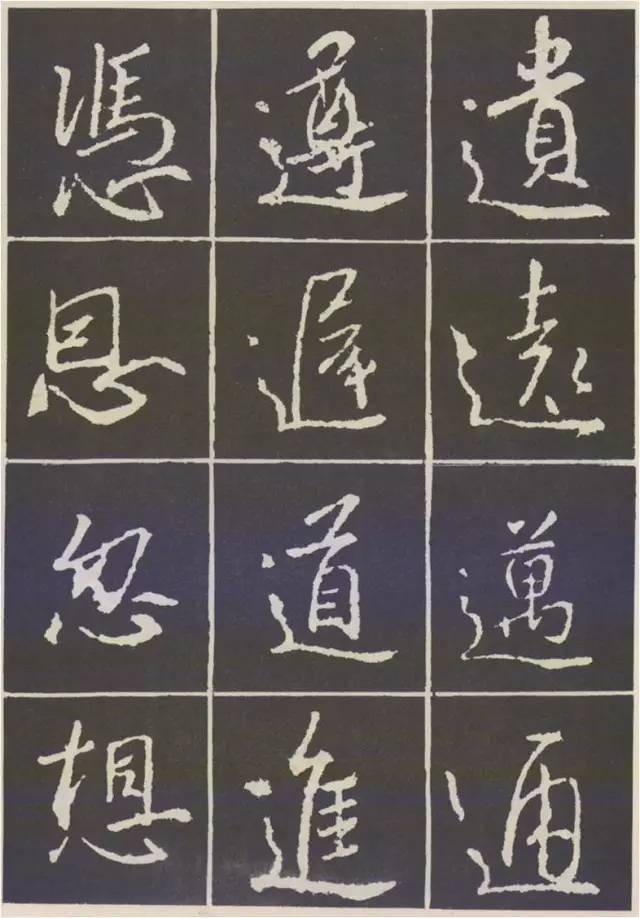 遺遠邁
遵遲道進
憑恩忽想